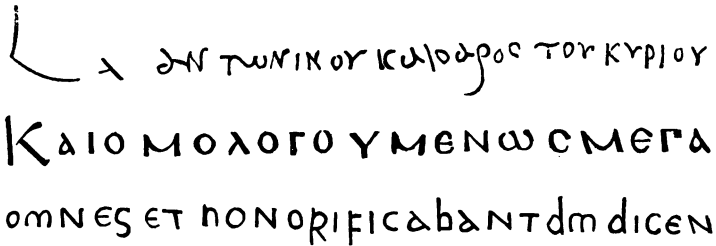 L λ αντωνινου καιϲαρος του κυριου
ΚΑΙΟΜΟΛΟΓΟΥΜΕΝωϹΜΕΓΑ
omNES ET hONORIFICAbANT dm dICEN